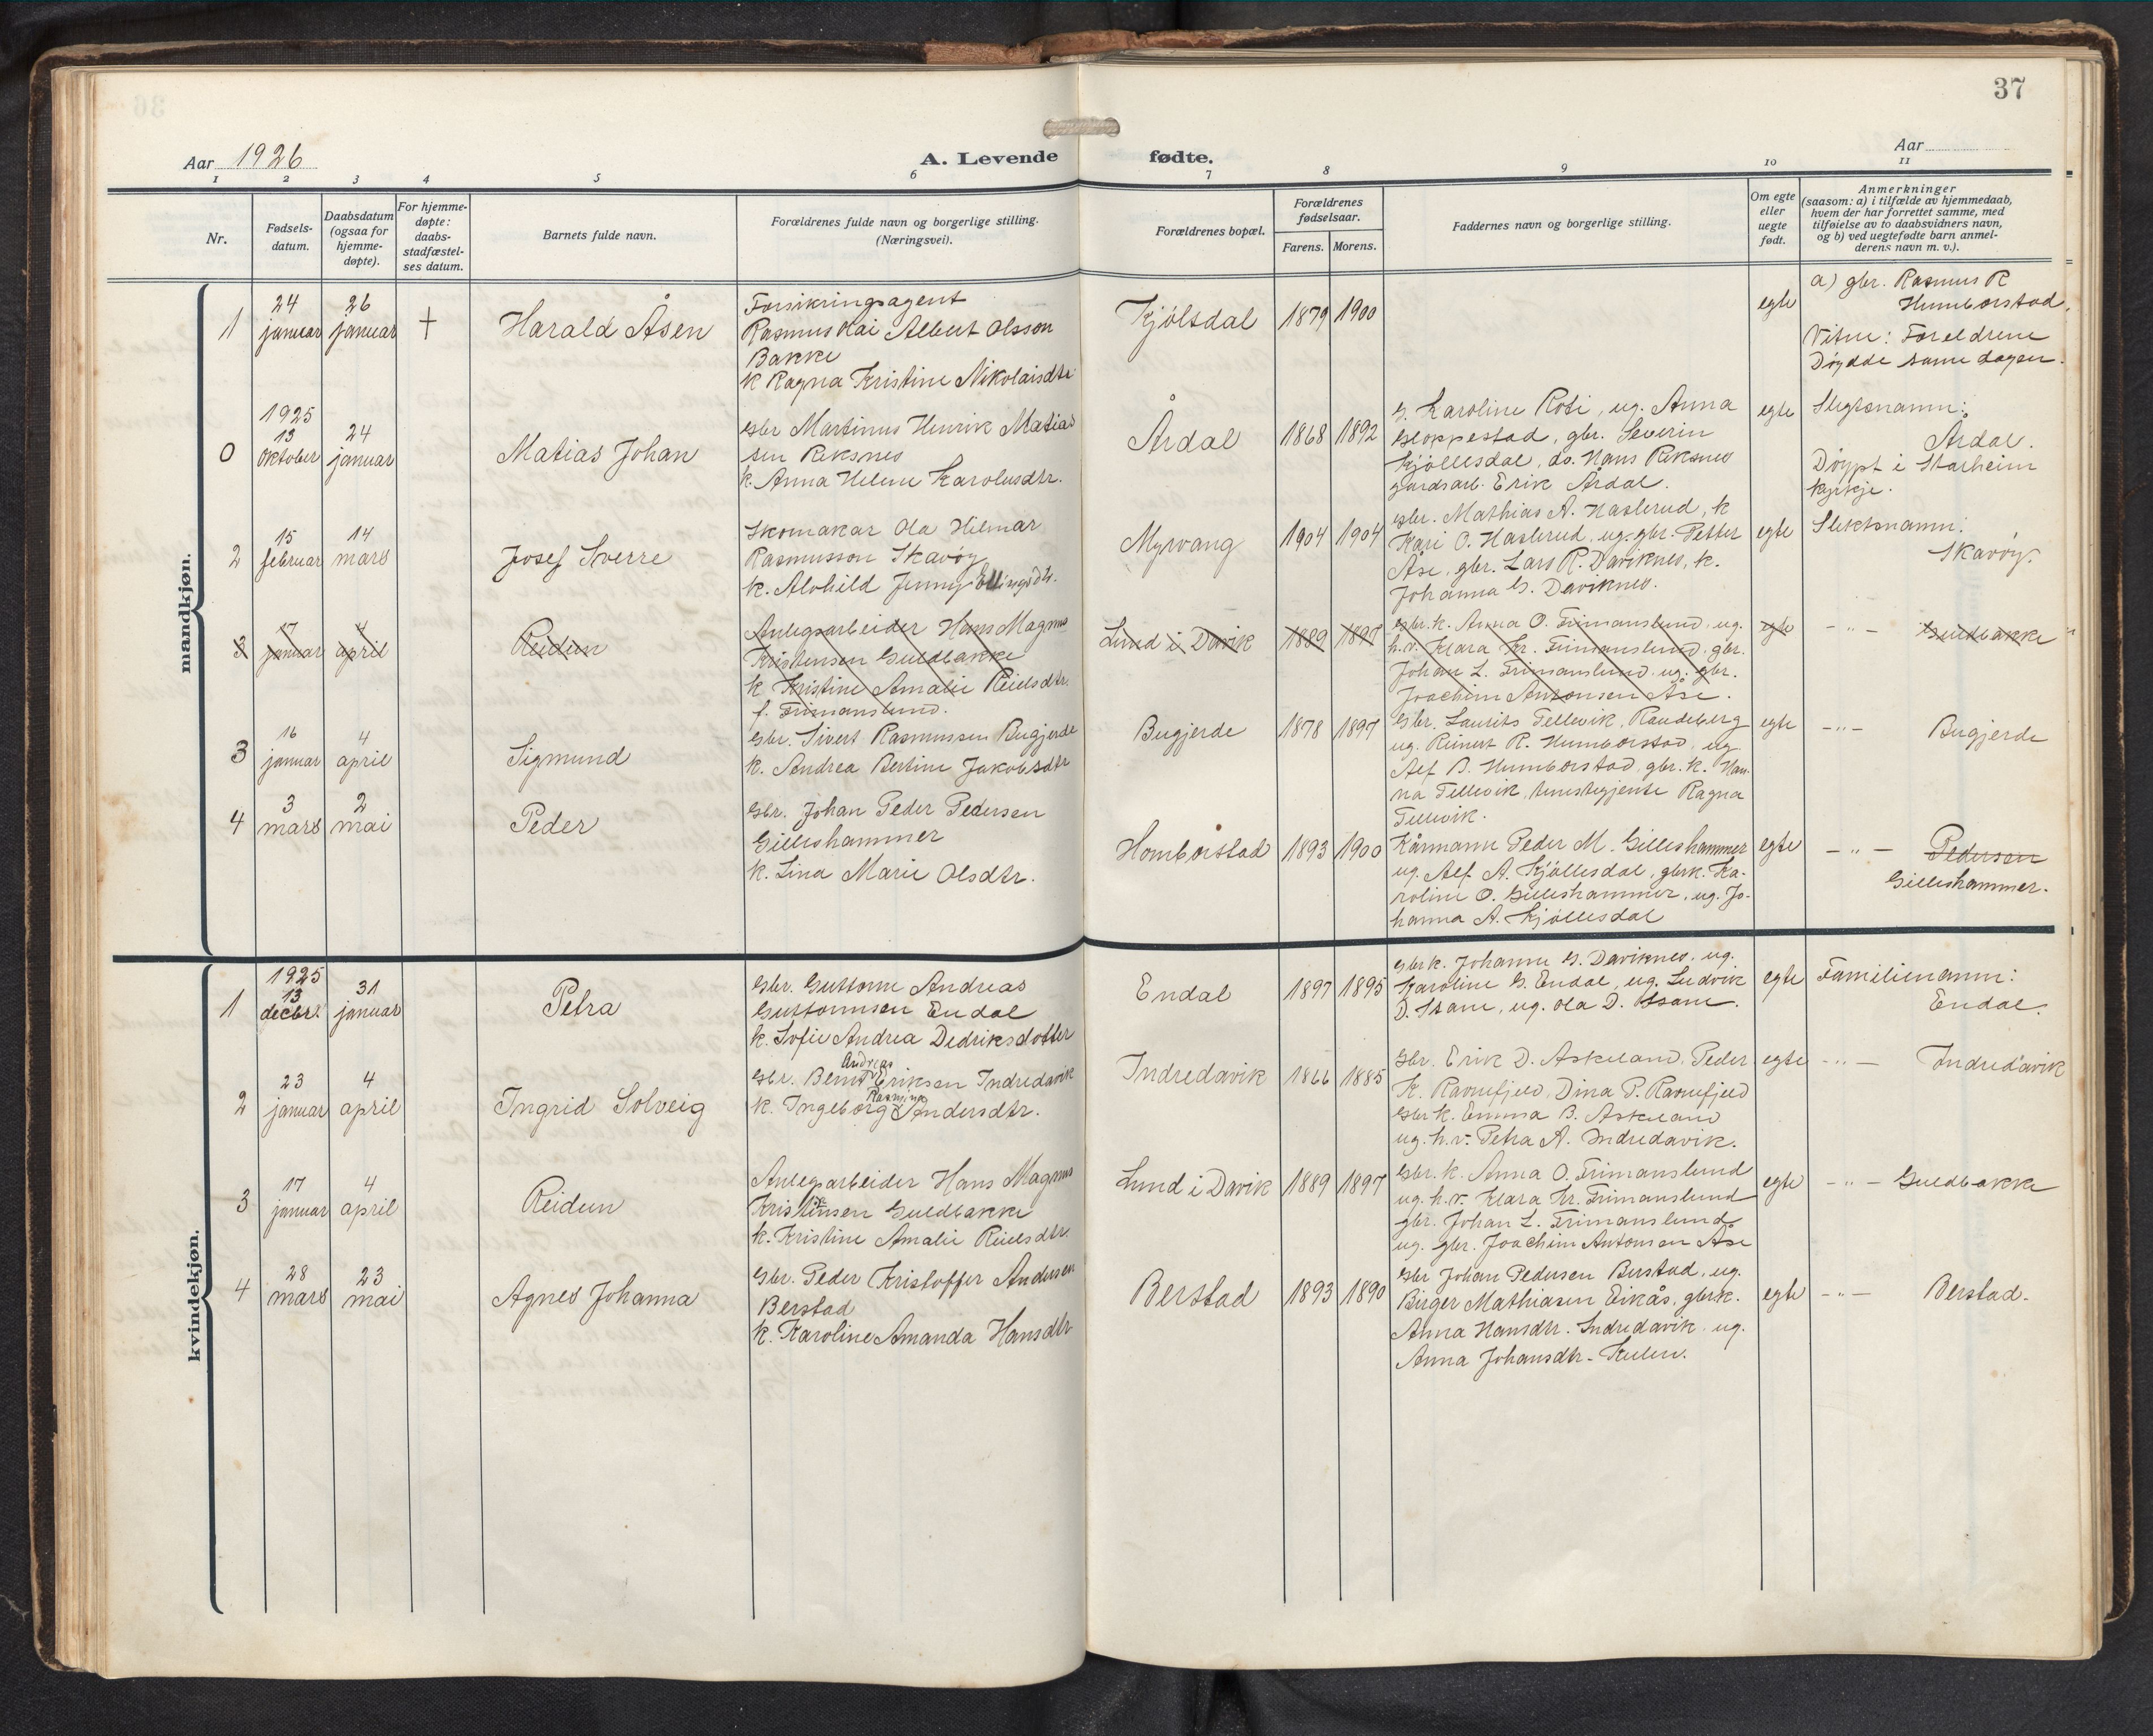 37
Aar 1926
A. Levende
fødte.
Aar
1 2 3 4 5 6 7 8 9 10 11
Nr.
Fødsels-
datum.
Daabsdatum
(ogsaa for
hjemme-
døpte).
For hjemme-
døpte:
daabs-
stadfæstel-
ses datum.
Barnets fulde navn.
Forældrenes fulde navn og borgerlige stilling.
(Næringsvei).
Forældrenes bopæl.
Forældrenes
fødselsaar.
Farens. Morens.
Faddernes navn og borgerlige stilling.
Om egte
eller
uegte
født.
Anmerkninger
(saasom: a) i tilfælde av hjemmedaab,
hvem der har forrettet samme, med
tilføielse av to daabsvidners navn,
og b) ved uegtefødte barn anmel-
derens navn m. v.).
mandkjøn.
1
24
januar
26
januar
†
Harald Åsen
Forsikringsagent
Rasmus Kai Albert Olsson
Bakke
k Ragna Kristine Nikolaisdtr
Kjölsdal
1879
1900
egte
a) gbr. Rasmus R
Humborstad.
Vitne: Foreldrene
Döydde same dagen.
0
1925
13
oktober
24
januar
Matias Johan
gbr Martinus Henrik Matias
sen Reksnes
k. Anna Helene Karolusdtr.
Årdal
1868
1892
G. Karoline Roti, ug. Anna
Gloppestad, gbr. Severin
Kjöllesdal, do. Hans Reksnes
gardsarb. Erik Årdal.
egte
Slegtsnamn:
Årdal.
Döypt i Starheim
kyrkje.
2
15
februar
14
mars
Josef Sverre
Skomakar Ola Hilmar
Rasmusson Skavöy
k. Alvhild Jenny Ellingsdtr.
Myrvang
1904
1904
gbr. Mathias A. Haslerud, k
Kari O. Haslerud, ug. gbr. Petter
Åse, gbr. Lars R. Daviknes, k.
Johanna G. Daviknes.
egte
Slektsnamn:
Skavöy.
3
17
januar
4
april
Reidun
Anlegsarbeider Hans Magnus
Kristensen Guldbakke
k Kristine Amalie Reielsdtr.
f. Frimanslund.
Lund i Davik
1889
1897
gbr.k. Anna O. Frimanslund, ug.
h.v. Klara Kr. Frimanslund, gbr.
Johan L. Frimanslund, ug. gbr.
Joachim Antonsen Åse.
egte
- " - Guldbakke
3
16
januar
4
april
Sigmund
Gbr. Sivert Rasmussen Bugjerde
k. Andrea Bertine Jakobsdtr
Bugjerde
1878
1897
Gbr. Laurits Tellevik, Raudeberg
ug. Reinert R. Humborstad, ug
Alf B. Humborstad, gbr. k. Han-
na Tellevik, tenestegjente Ragna
Tellevik.
egte
- " - Bugjerde
4
3
mars
2
mai
Peder
Gbr. Johan Peder Pedersen
Gilleshammer
k. Lina Marie Olsdtr.
Homborstad
1893
1900
Kårmann Peder M. Gilleshammer
ug. Alf A. Kjöllesdal, gbrk. Ka-
roline O. Gilleshammer, ug. Jo-
hanna A. Kjöllesdal
egte
- " - Pedersen
Gilleshammer.
kvindekjøn.
1
1925
13
decbr.
31
januar
Petra
Gbr. Guttorm Andreas
Guttormsen Endal
k. Sofie Andrea Dedriksdotter
Endal
1897
1895
Gbrk. Johanne G. Daviknes, ug.
Karoline G. Endal, ug. Ludvik
D. Isane, ug. Ola D. Isane.
egte
Familienamn:
Endal.
2
23
januar
4
april
Ingrid Solveig
Andreas
Gbr. Bernt Eriksen Indredavik
Rasmine
k. Ingeborg Andersdtr.
Indredavik
1866
1885
Gbr. Erik D. Askeland, Peder
K. Ravnefjeld, Dina P. Ravnefjeld
Gbr k. Emma B. Askeland
ug. h.v. Petra A. Indredavik.
egte
- " - Indredavik
3
17
januar
4
april
Reidun
Anlegsarbeider Hans Magnus
Kristensen Guldbakke
k. Kristine Amalie Reielsdtr.
Lund i Davik
1889
1897
Gbr. k. Anna O. Frimanslund
ug. h.v. Klara Kr. Frimanslund
gbr. Johan L. Frimanslund
ug. gbr. Joachim Antonsen Åse
egte
- " - Guldbakke
4
28
mars
23
mai
Agnes Johanna
Gbr. Peder Kristoffer Andersen
Berstad
k. Karoline Amanda Hansdtr
Berstad
1893
1890
Gbr Johan Pedersen Berstad, ug.
Birger Mathiasen Eikås, gbrk.
Anna Hansdtr. Indredavik, ug.
Anna Johansdtr. Keilen.
egte
- " - Berstad.